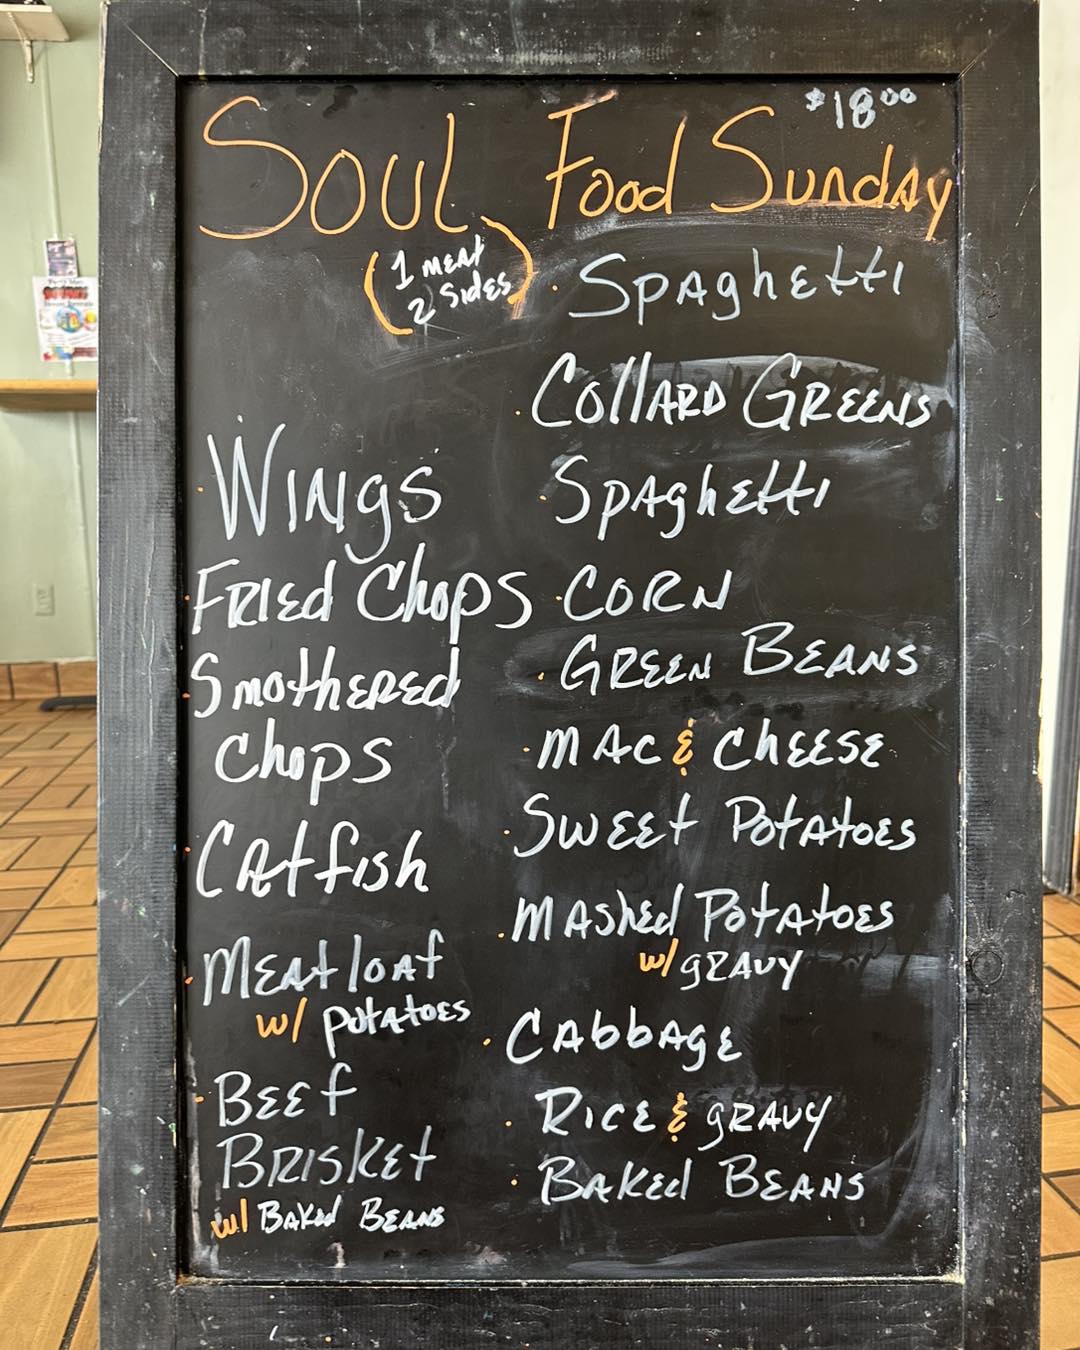 $18.00
Soul Food Sunday
(1 meat
2 sides)
· Spaghetti
· Collard Greens
· Wings
· Spaghetti
· Fried Chops
· Corn
· Smothered
Chops
· Green Beans
· Mac & Cheese
· Sweet Potatoes
· Catfish
· Mashed Potatoes
w/ gravy
· Meatloaf
w/ potatoes
· Cabbage
· Beef
Brisket
w/ Baked Beans
· Rice & gravy
· Baked Beans